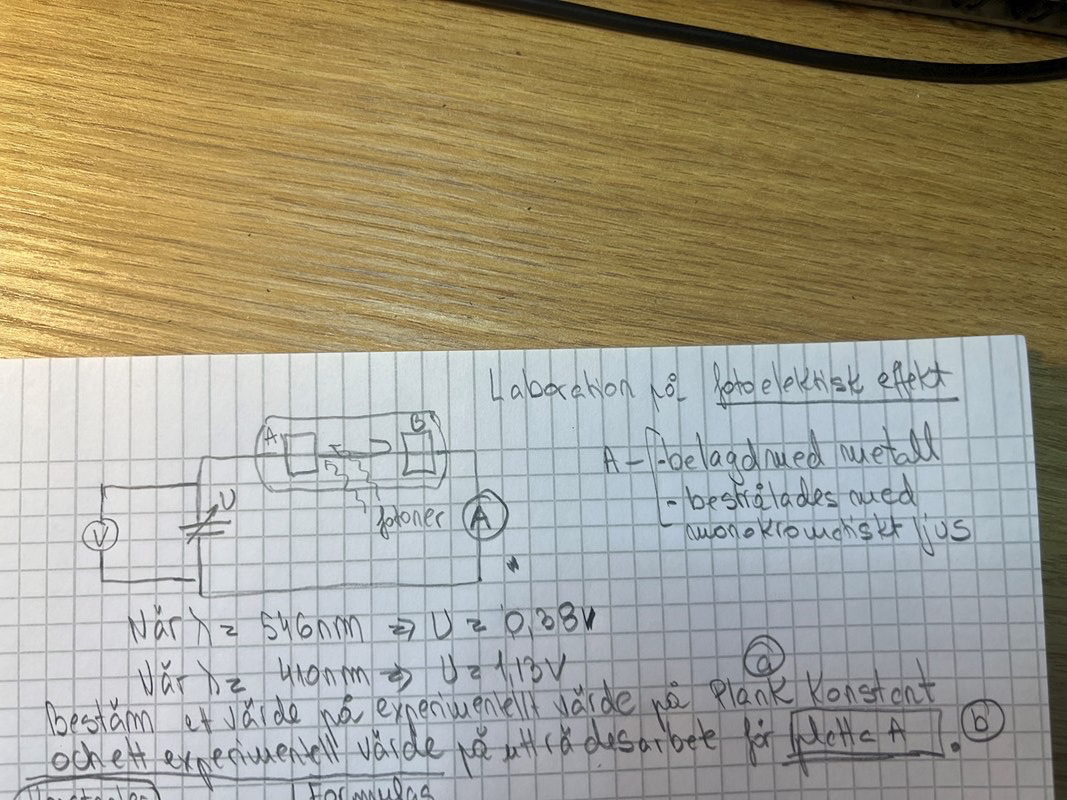 Laboration på fotoelektrisk effekt
A B
A - - belagd med metall
- bestrålades med
monokromatiskt ljus
U
V
fotoner
A
När λ = 546nm => U = 0,38V
När λ = 410nm => U = 1,13V
a
Bestäm et värde på experimentellt värde på Plank Konstant
och ett experimentell värde på utträdesarbete för A . b
Formulas